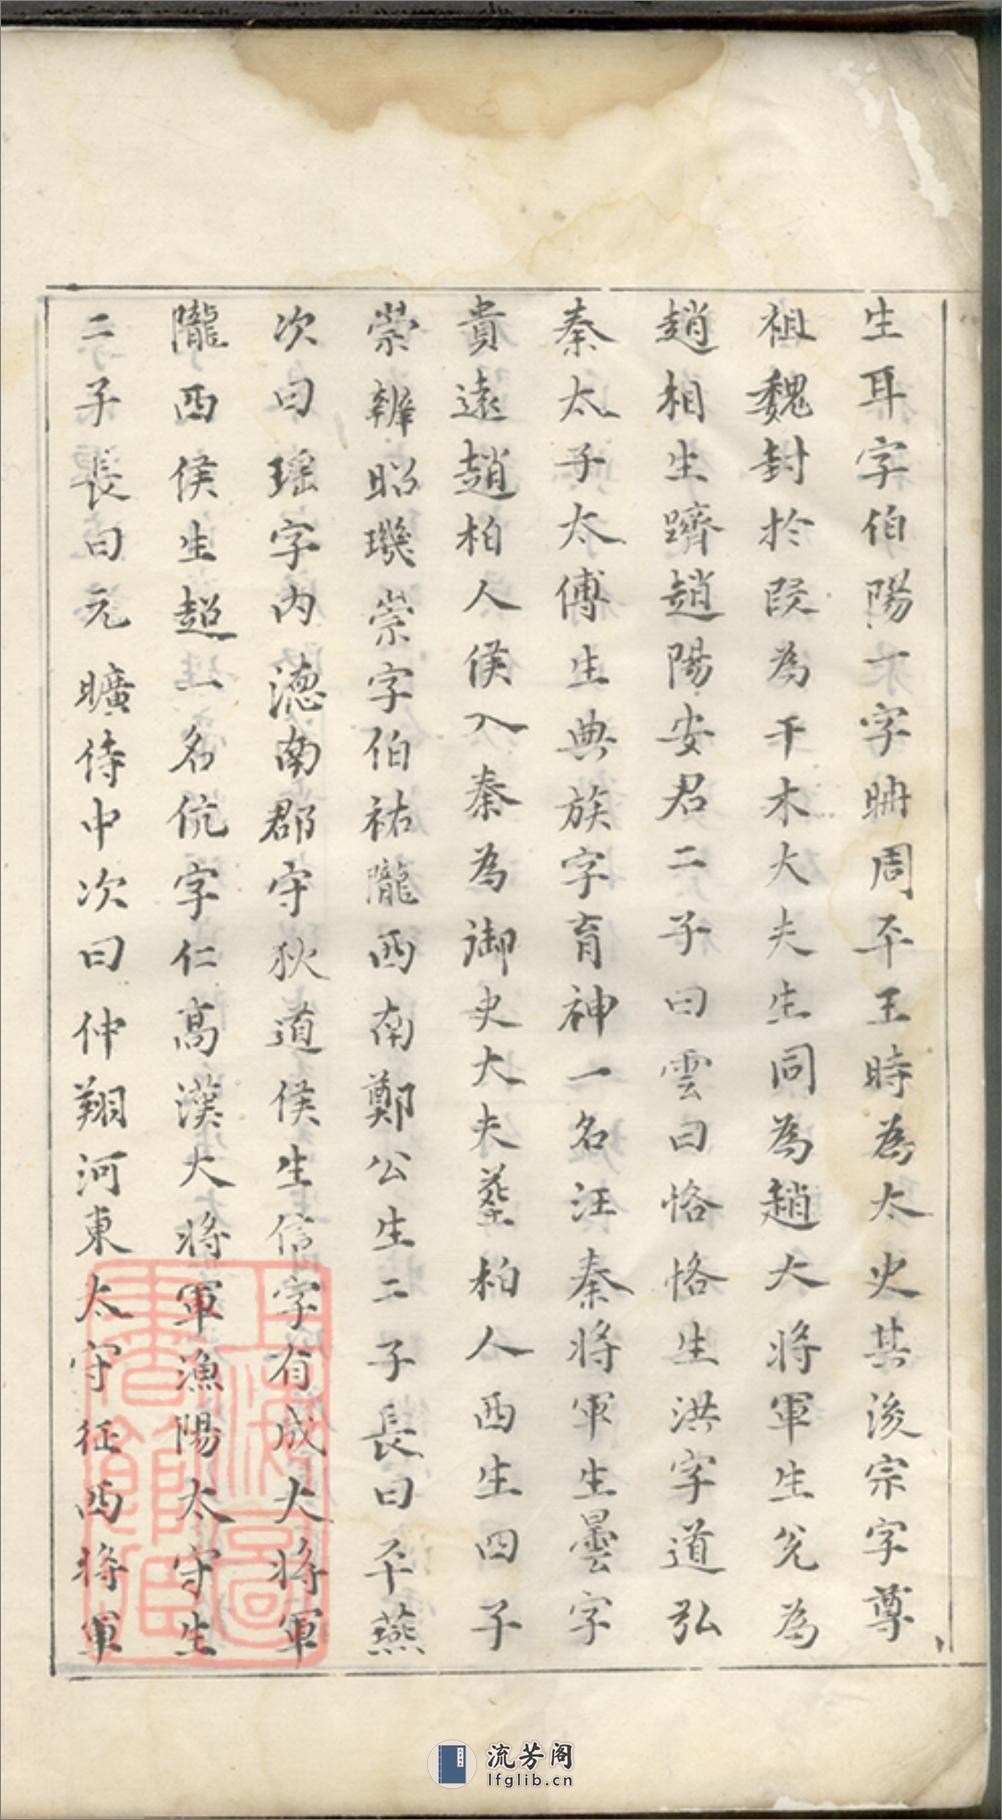 生耳字伯陽一字聃周平王時為太史其後宗字尊
祖魏封於段為干木大夫生同為趙大將軍生兌為
趙相生躋趙陽安君二子曰雲曰恪恪生洪字道弘
秦太子太傅生興族字育神一名汪秦將軍生曇字
貴遠趙柏人侯入秦為御史大夫葬柏人西生四子
崇辨昭璣崇字伯祐隴西南鄭公生二子長曰平燕
次曰瑤字內德南郡守狄道侯生信字有成大將軍
隴西侯生超一名伉字仁高漢大將軍漁陽太守生
二子長曰元曠侍中次曰仲翔河東太守征西將軍
上海圖書館藏
流芳阁
lfglib.cn